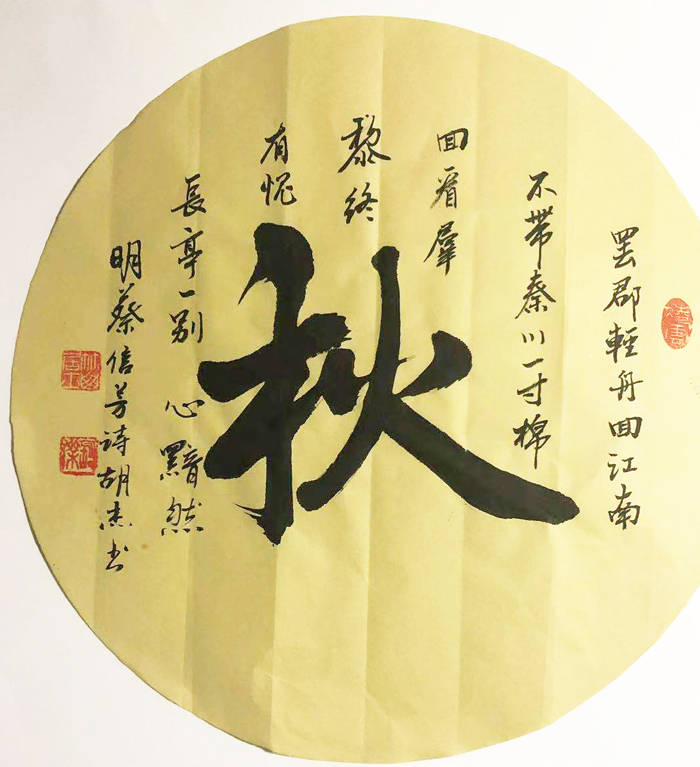 罢郡輕舟回江南
不帶秦川一寸棉
回看羣
黎終
有愧
長亭一别心黯然
明蔡信芳詩胡杰书
秋